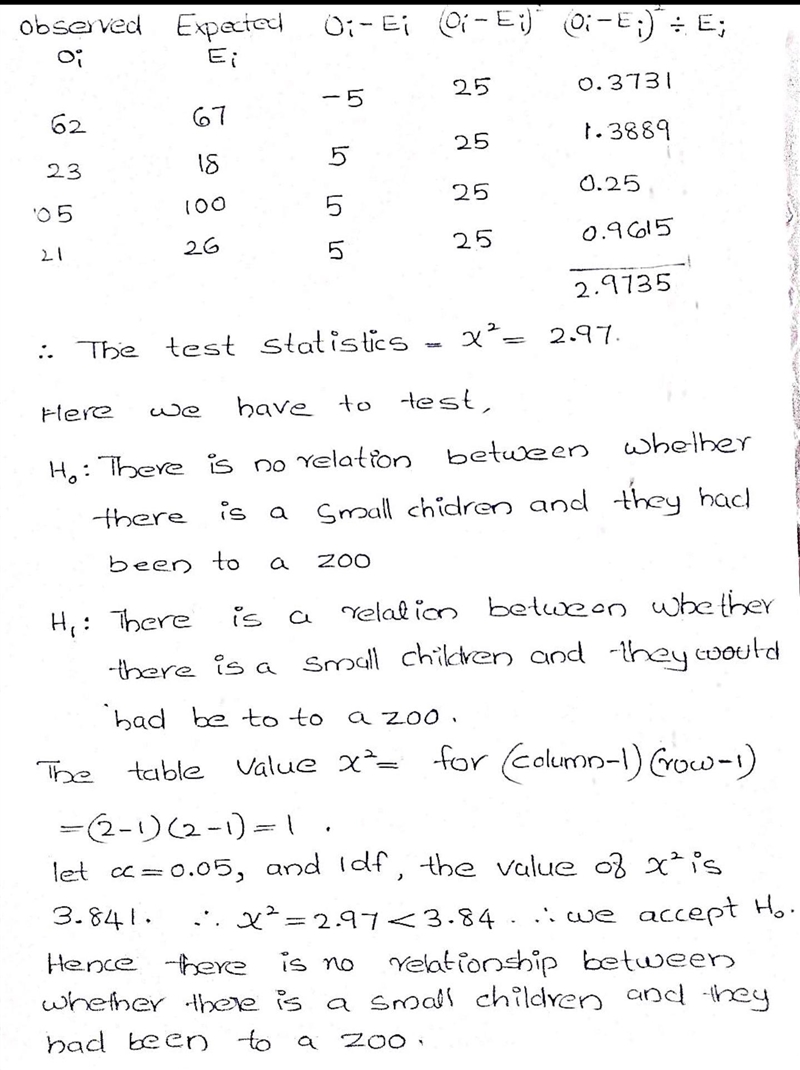 observed Expected Oi - Ei (Oi - Ei)² (Oi - Ei)² ÷ Ei
Oi Ei
62 67 -5 25 0.3731
23 18 5 25 1.3889
05 100 5 25 0.25
21 26 5 25 0.9615
2.9735
∴ The test statistics = x² = 2.97.
Here we have to test,
H₀: There is no relation between whelher
there is a small chidren and they had
been to a zoo
H₁: There is a relation between whether
there is a small children and they would
had be to to a zoo.
The table value x² = for (column-1) (row-1)
= (2-1) (2-1) = 1 .
let α = 0.05, and 1df, the value of x² is
3.841. ∴ x² = 2.97 < 3.84 . ∴ we accept H₀.
Hence there is no relationship between
whether there is a small children and they
had been to a zoo.